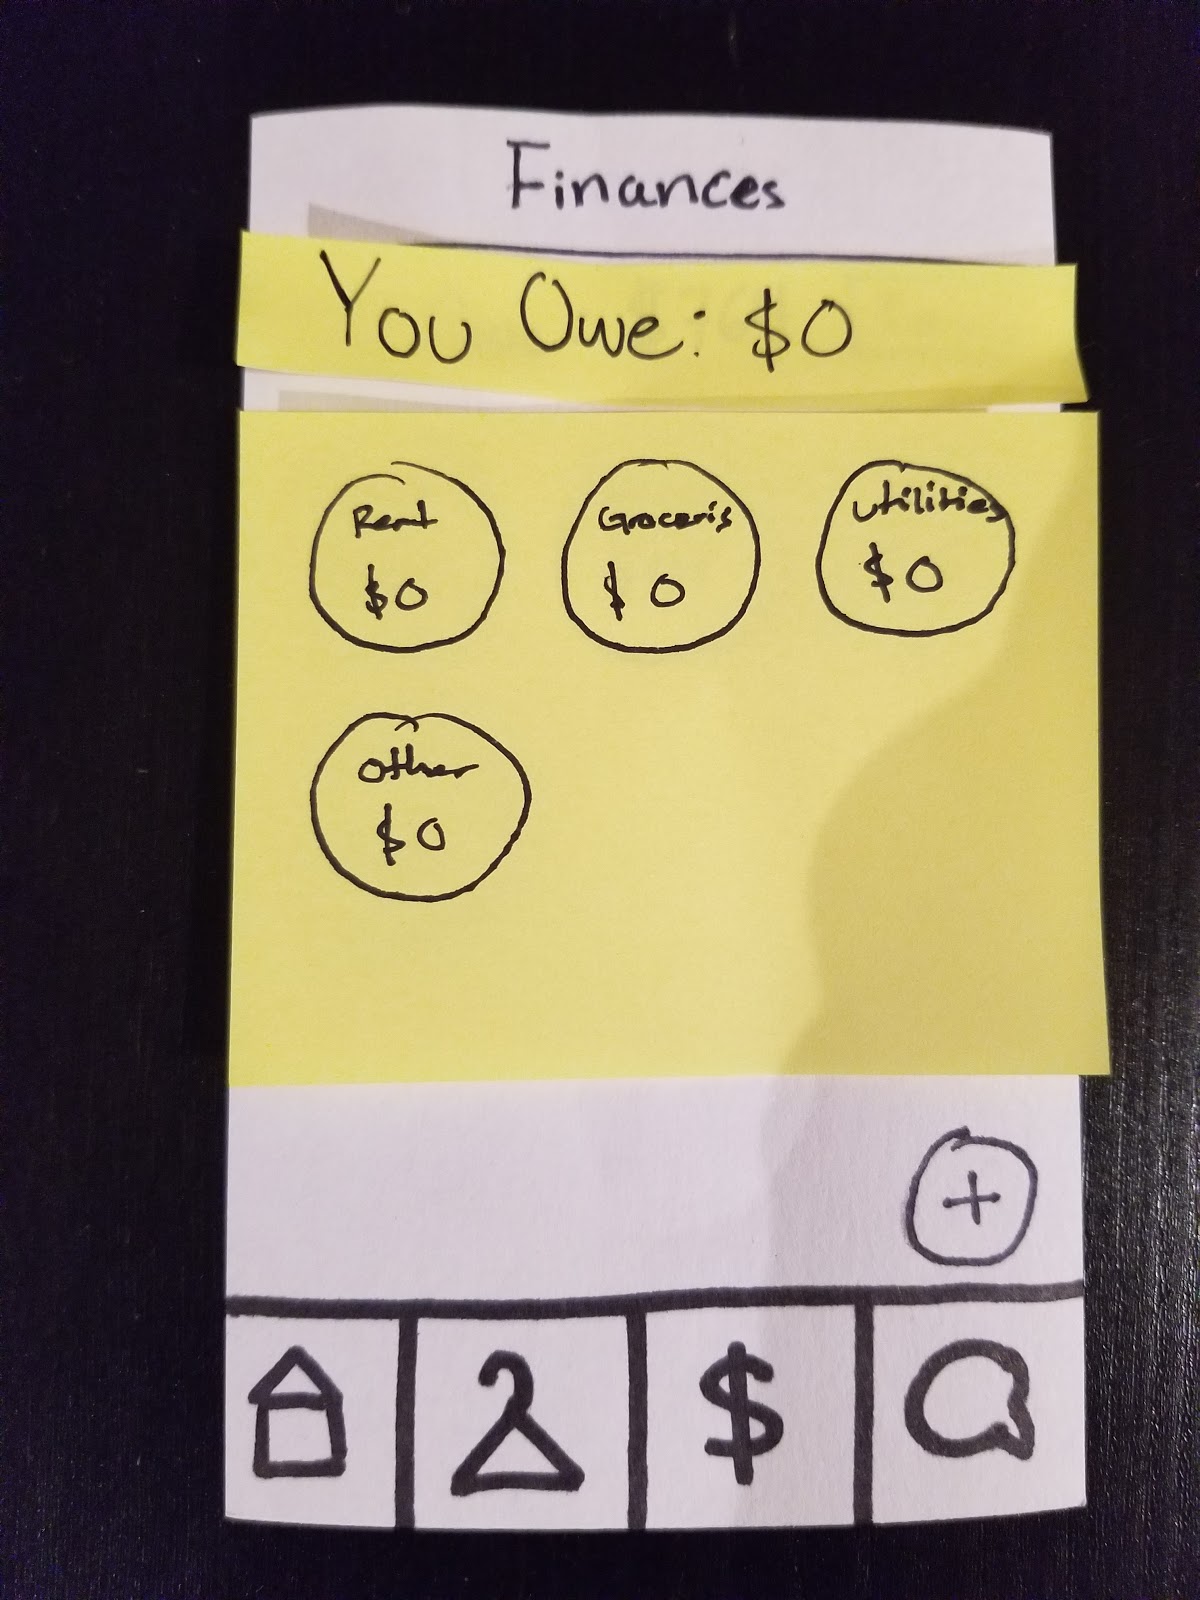 Finances
You Owe: $0
Rent
$0
Groceris
$0
Utilities
$0
Other
$0
+
$